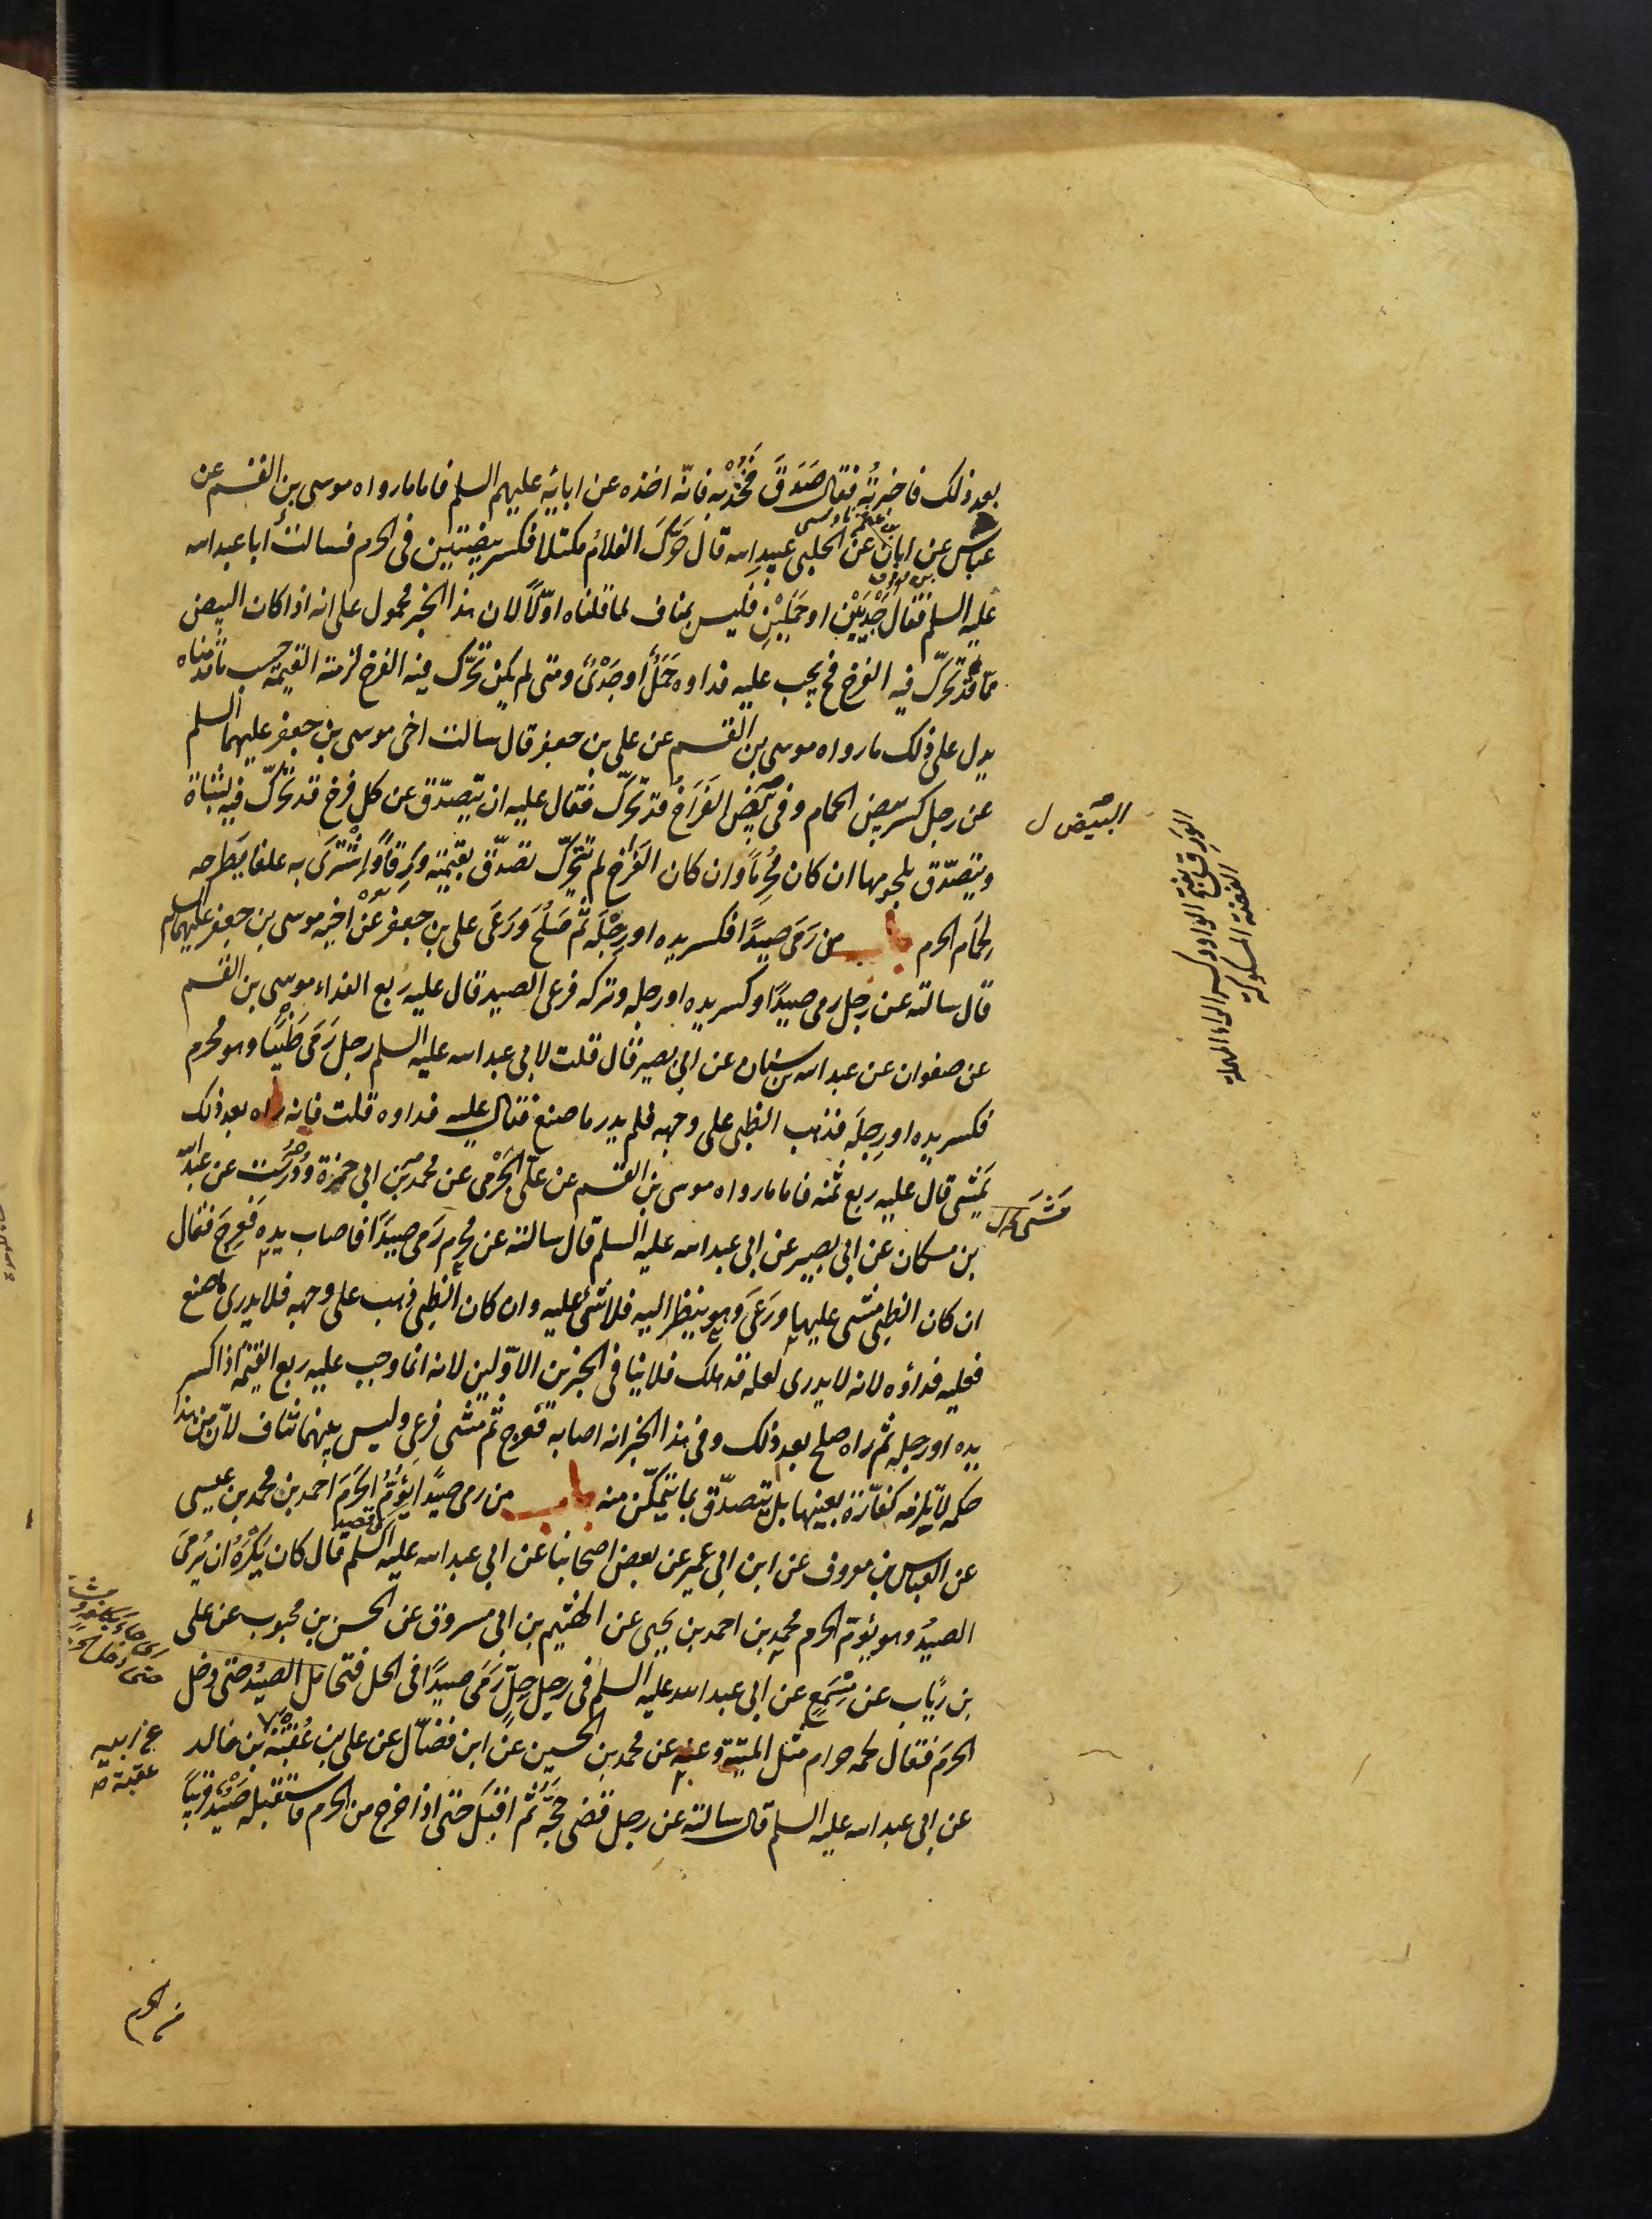 بعد ذلك فاخبرته فقال صَدَقَ فَخُذْ به فانّه اخذه عن ابائِه عليهم السلم فاما مارواه موسى بن القسم عن
عباس عن ابان عن الحلبى عبيد الله قال حَرَّكَ الغلامُ مكتلا فكسر بيضتين فى الحرم فسالتُ ابا عبد الله
عليه السلم فقال جَدْيَيْن او حَمَلَيْنِ فليس بمناف لما قلناه اوّلًا لان هذا الخبر محمول على انه اذا كان البيض
مما قد تحرّك فيه الفرخ فح يجب عليه فداوه حَمَلًا او جَدْيًا ومتى لم يكن تحرّك فيه الفرخ لزمته القيمة حسب ما قدمناه
يدل على ذلك ما رواه موسى بن القسم عن على بن جعفر قال سالت اخى موسى بن جعفر عليهما السلم
عن رجل كسر بيض الحمام وفى بَيْضِ الفَرَاخُ قد تحرّك فقال عليه ان يتصدّق عن كل فرخ قد تحرّك فيه بشاة
ويتصدّق بلحومها ان كان مُحْرِمًا وان كان الفَرْخ لم يتحرّك تصدّق بقيمته وَرِقًا واشْتَرَى به علفا يَطْرحه
لِحَمَام الحرم باب من رَمَى صَيدًا فكسر يده او رِجْلَه ثم صَلُحَ وَرَعَى على بن جعفر عَنْ اخيه موسى بن جعفر عليهما السلم
قال سالته عن رجل رمى صيدًا وكسر يده او رجله وتركه فرعى الصيد قال عليه ربع الفداء موسى بن القسم
عن صفوان عن عبد الله بن سنان عن ابى بصير قال قلت لابى عبد الله عليه السلم رجل رَمَى ظَبْيًا وهو محرم
فكسر يده او رِجلَه فذهب الظبى على وجهه فلم يدر ما صنع فقال عليه فداوه قلت فانه راه بعد ذلك
يَمْشى قال عليه ربع ثمنه فاما مارواه موسى بن القسم عن علىّ الجَرْمى عن محمد بن ابى حمزة ودُرُسْت عن عبد الله
بن مسكان عن ابى بصير عن ابى عبد الله عليه السلم قال سالته عن مُحْرِم رَمى صيدًا فاصاب يده فَعَرِجَ فقال
ان كان الظبى مشى عليها ورَعَى وهو ينظر اليه فلا شئ عليه وان كان الظبى ذهب على وجهه فلا يدرى ما صنع
فعليه فداؤه لانه لا يدرى لعله قد هلك فلا ينافى الخبرين الاوّلين لانه انما وجب عليه ربع القيمة اذا كسر
يده او رجله ثم راه صلح بعد ذلك وفى هذا الخبر انه اصابه فعرج ثم مشى فرعى وليس بينهما تناف لانّ من هذا
حكمه لا يلزمه كفّارة بعينها بل يتصدّق بما يتمكّن منه باب من رمى صيدًا يَؤُمُّ الحَرَمَ احمد بن محمد بن عيسى
عن العباس بن معروف عن ابن ابى عمير عن بعض اصحابنا عن ابى عبد الله عليه السلم قال كان يَكْرَهُ ان يُرمَى
الصيدُ وهو يؤمّ الحرم محمد بن احمد بن يحيى عن الهيثم بن ابى مسروق عن الحسن بن محبوب عن على
بن رِيَاب عن مِسْمَعٍ عن ابى عبد الله عليه السلم فى رجل حِلٍّ رَمَى صيدًا فى الحل فتحامل الصيدُ حتى دخل
الحرَم فقال لحمه حرام مثل الميتة وعنه عن محمد بن الحسين عن ابن فضّال عن على بن عُقْبَةَ بن خالد
عن ابى عبد الله عليه السلم قال سالته عن رجل قضى حجّه ثُمَّ اقبَلَ حتى اذا خرج من الحرم فاستقبله صَيْدٌ قريبًا
من الحرم
البَيْض ل
الوَرِق بفتح الواو وكسر الراء المهملة
الفضة المسكوكة
مَشَى
عن ابيه
عقبة